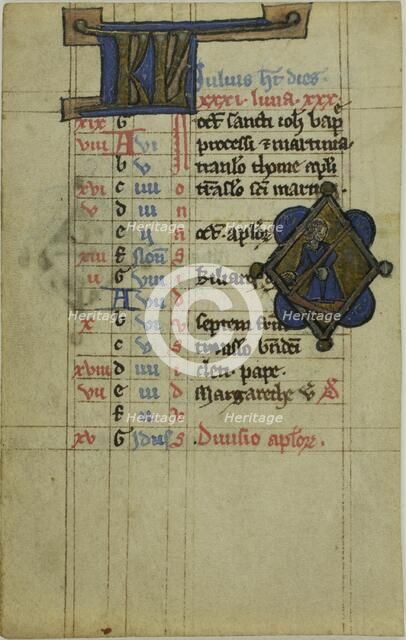 KL Iulius ht dies
xxxi luna xxx
xix G oct sancti ioh bape
viii A vi processi & martinia
b v translo thome apli
xvi c iiii translo sci martini
v d iii
e ii oct aplor
xiii f Non
ii G viii kiliani
A vii
x b vi septem frm
c v translo bndicti
xviii d iiii clen pape
vii e iii Margarethe v
f ii
xv G Idus Diuisio aplor
Heritage
Heritage
Heritage
Heritage
Heritage
Heritage
Heritage